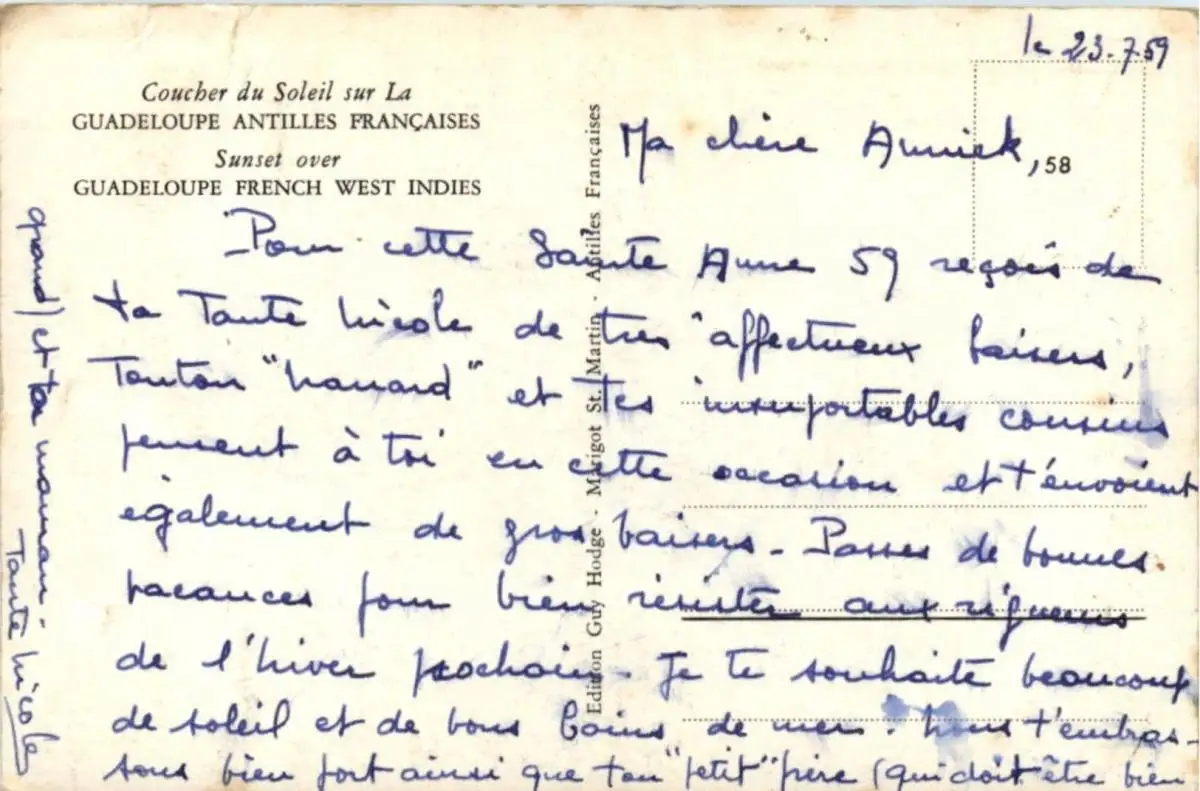 le 23.7.59
Coucher du Soleil sur La
GUADELOUPE ANTILLES FRANÇAISES
Sunset over
GUADELOUPE FRENCH WEST INDIES
Edition Guy Hodge - Marigot St. Martin - Antilles Françaises
58
Ma chère Annick,
Pour cette Sainte Anne 59 reçois de
ta Tante Nicole de très affectueux baisers,
Tonton "nanard" et Tes insupportables cousins
pensent à toi en cette occasion et t'envoient
également de gros baisers - Passes de bonnes
vacances pour bien résister aux rigueurs
de l'hiver prochain. Je te souhaite beaucoup
de soleil et de bons bains de mer. Nous t'embras-
sons bien fort ainsi que ton "petit" frère (qui doit être bien
grand) et ta maman -
Tante Nicole